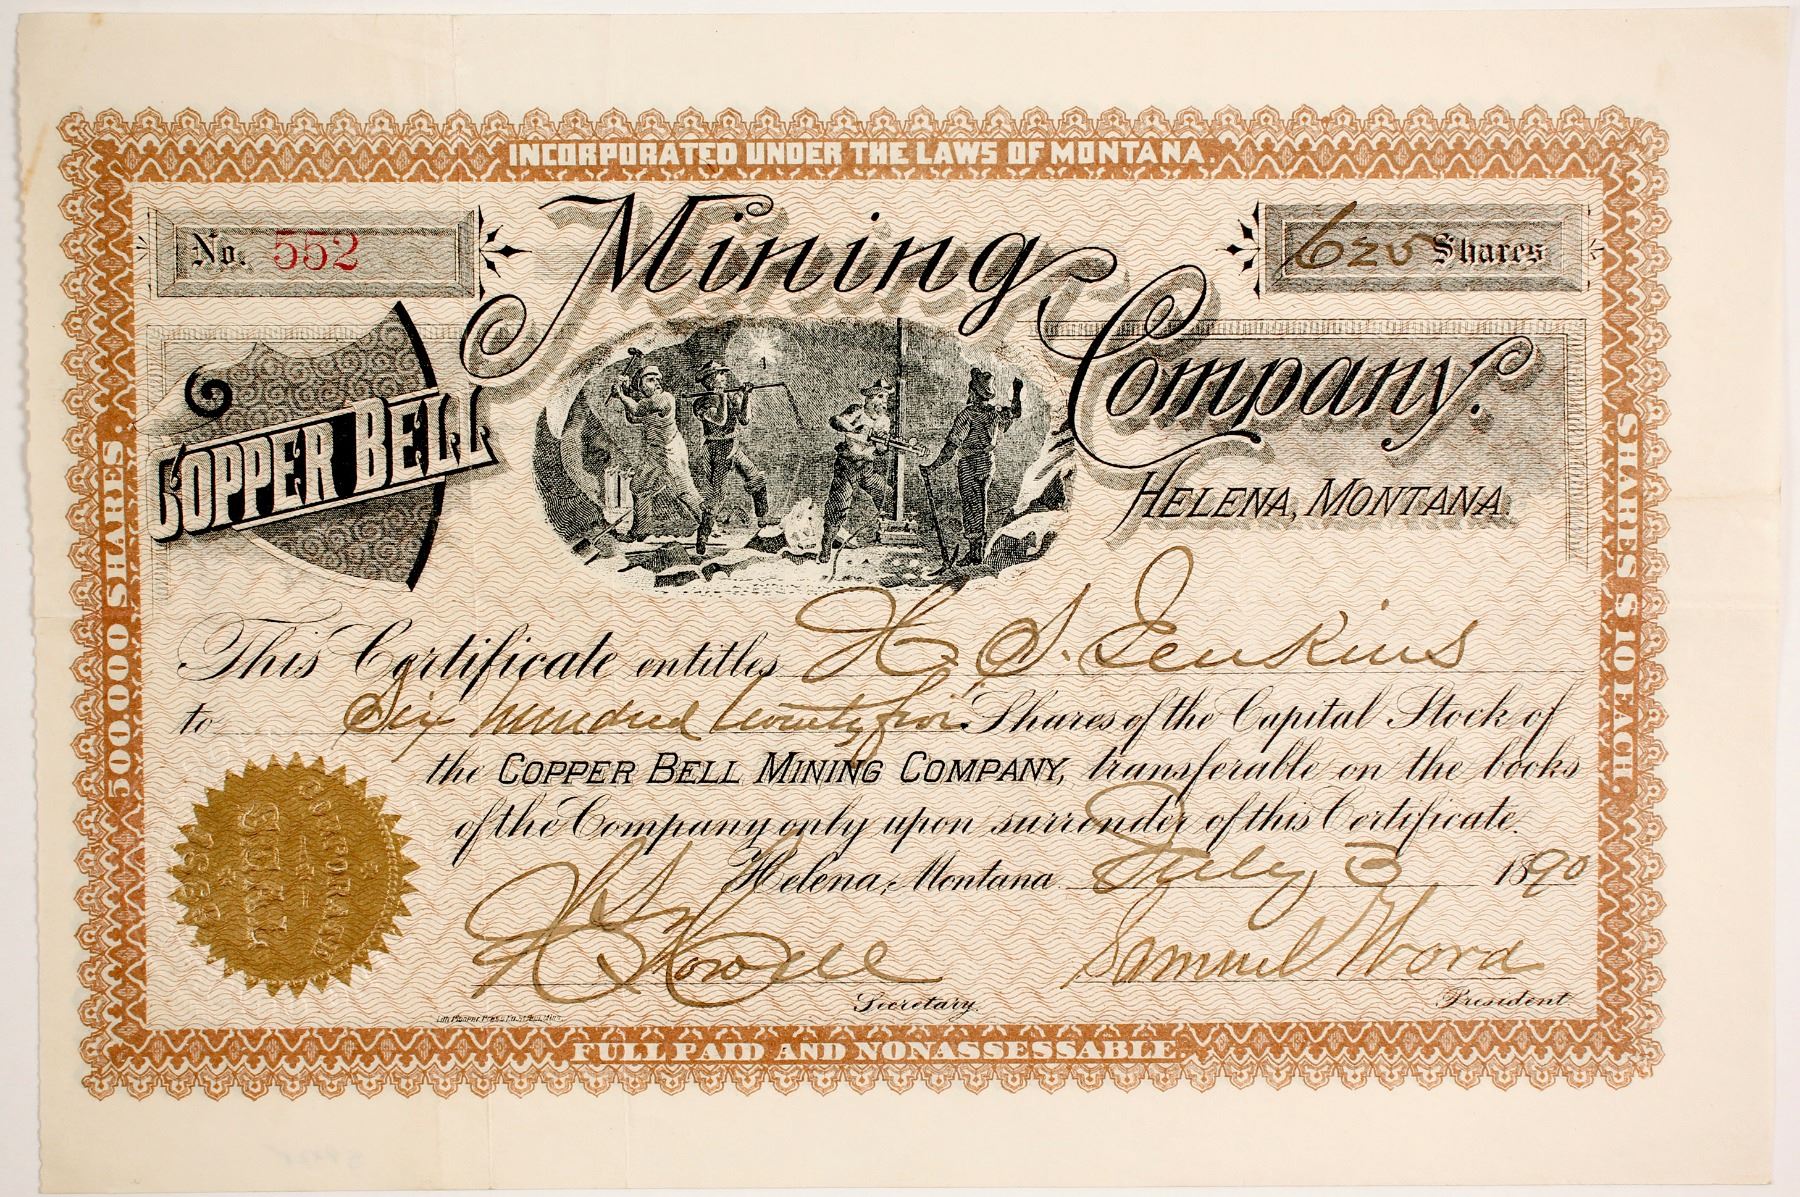 INCORPORATED UNDER THE LAWS OF MONTANA.
No. 552
625 Shares
COPPER BELL
Mining Company.
HELENA, MONTANA.
500,000 SHARES.
SHARES $10 EACH.
This Certificate entitles H. S. Jenkins
to Six hundred twenty five Shares of the Capital Stock of
the COPPER BELL MINING COMPANY, transferable on the books
of the Company only upon surrender of this Certificate.
Helena, Montana July 3 1890
CORPORATE
SEAL
1889
Samuel Word
Secretary.
President.
Lith. Pioneer Press Co. St. Paul, Minn.
FULL PAID AND NONASSESSABLE.